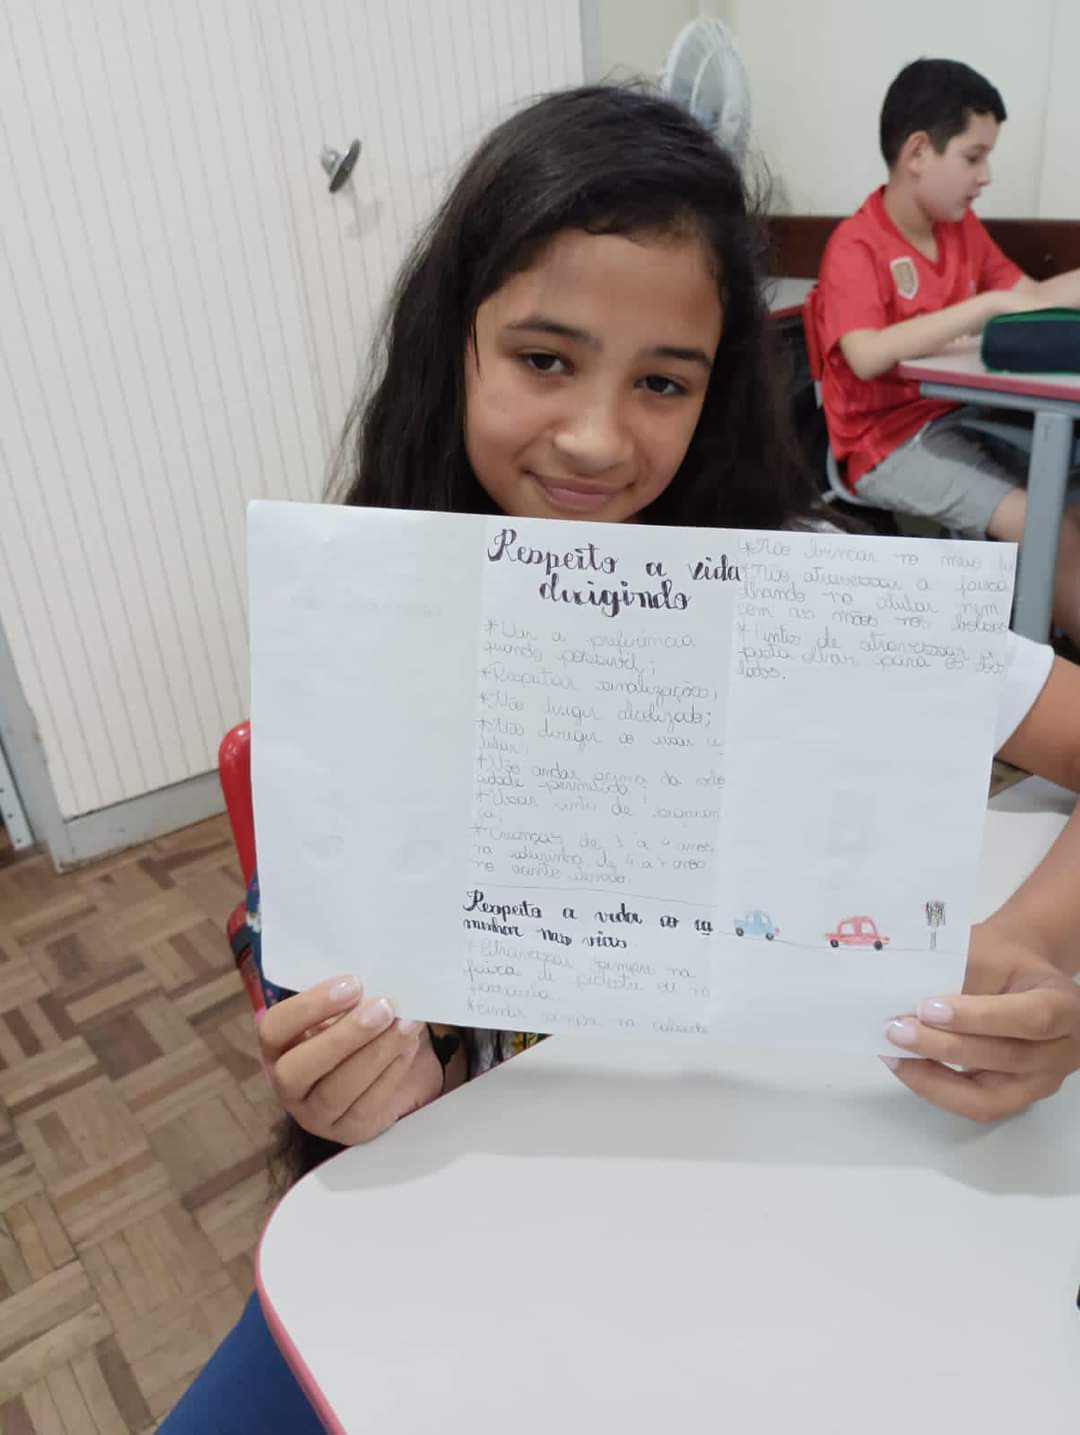 Respeito a vida
dirigindo
*Dar a preferência
quando possível;
*Respeitar sinalização;
*Não dirigir alcolizado;
*Não dirigir ao usar ce
lular;
*Não andar acima da velo
cidade permitida;
*Usar cinto de seguran
ça;
*Crianças de 1 a 4 anos
na cadeirinha de 4 a 7 anos
no
Respeito a vida ao ca
minhar nas vias
*Atravessar sempre na
faixa de pedestre ou na
passarela
*Andar sempre na calçada
*Não brincar no meio
*Não atravessar a faixa
olhando no celular nem
com as mãos nos bolsos
*Antes de atravessar a
pista olhar para os dois
lados.